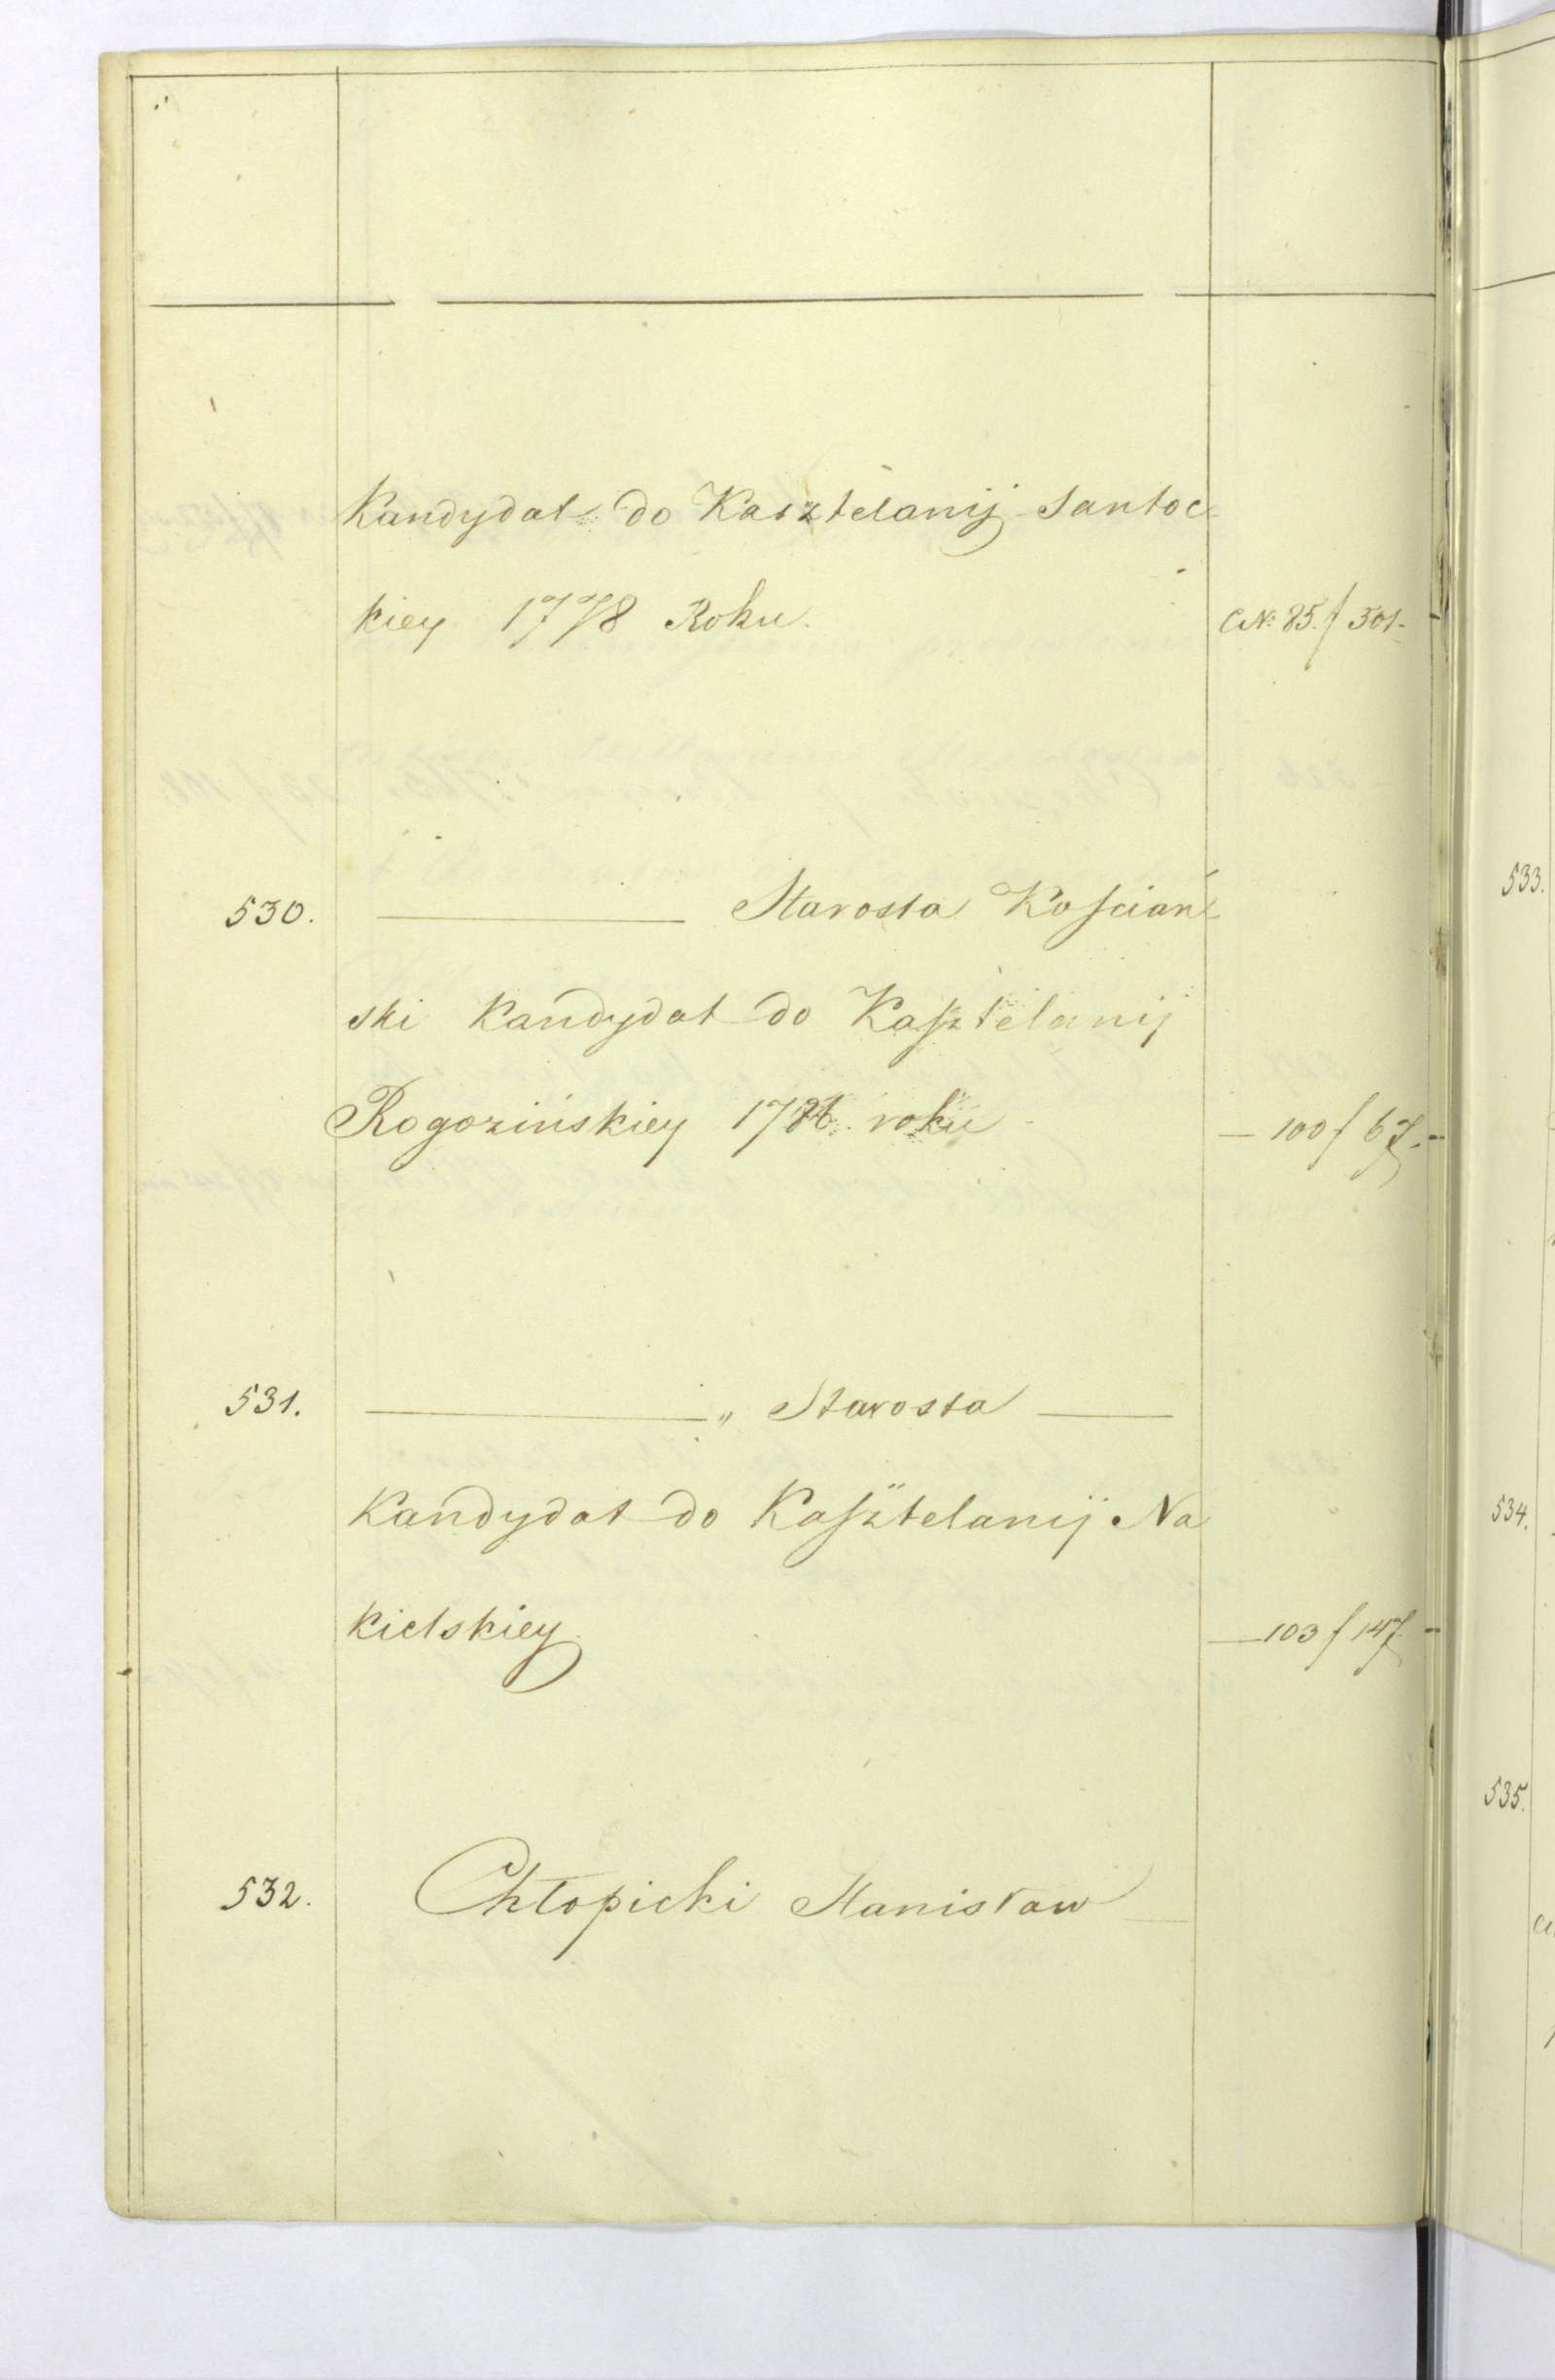 Kandydat do Kasztelanij Santoc-
kiey 1778 Roku. CN: 85. f 501.
530. ——— Starosta Kościań
ski Kandydat do Kasztelanij
Rogozińskiey roku — 100 f 67.
531. ———„ Starosta ———
Kandydat do Kasztelanij Na
kielskiey. — 103 f 147.
532. Chłopicki Stanisław —
533.
534.
535.